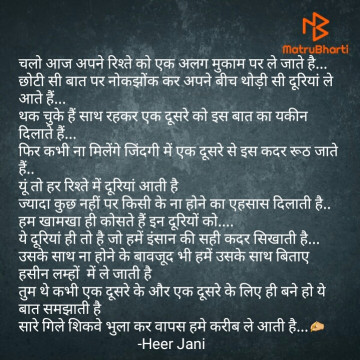 MatruBharti
चलो आज अपने रिश्ते को एक अलग मुकाम पर ले जाते है...
छोटी सी बात पर नोकझोंक कर अपने बीच थोड़ी सी दूरियां ले
आते हैं...
थक चुके हैं साथ रहकर एक दूसरे को इस बात का यकीन
दिलाते हैं...
फिर कभी ना मिलेंगे जिंदगी में एक दूसरे से इस कदर रूठ जाते
हैं..
यूं तो हर रिश्ते में दूरियां आती है
ज्यादा कुछ नहीं पर किसी के ना होने का एहसास दिलाती है..
हम खामखा ही कोसते हैं इन दूरियों को....
ये दूरियां ही तो है जो हमें इंसान की सही कदर सिखाती है...
उसके साथ ना होने के बावजूद भी हमें उसके साथ बिताए
हसीन लम्हों में ले जाती है
तुम थे कभी एक दूसरे के और एक दूसरे के लिए ही बने हो ये
बात समझाती है
सारे गिले शिकवे भुला कर वापस हमे करीब ले आती है...✍
-Heer Jani